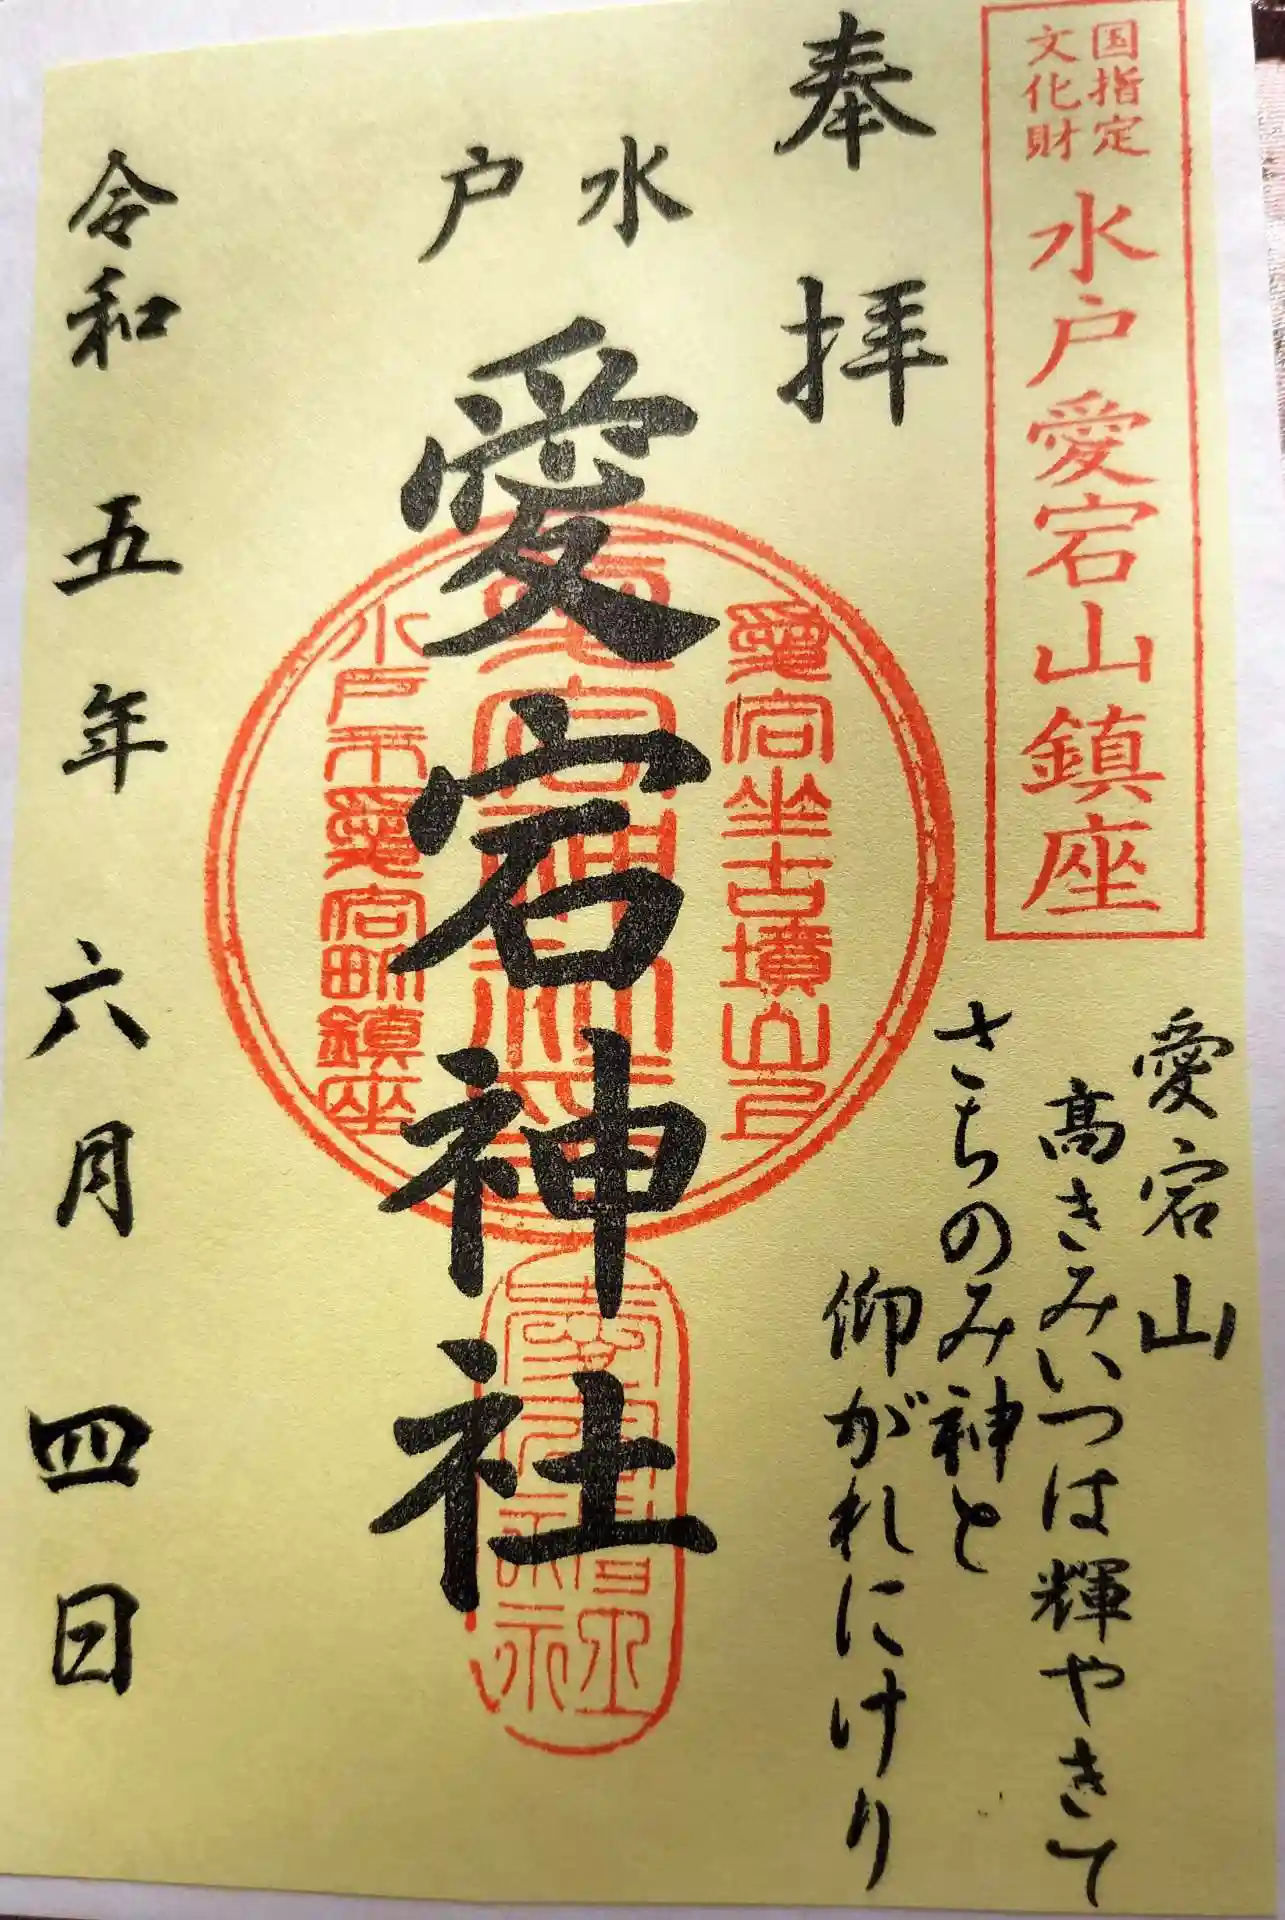 国指定
文化財
水戸愛宕山鎮座
奉拝
愛宕山
高きみいつは輝やきて
さちのみ神と
仰がれにけり
水戸
愛宕神社
愛宕坐古墳山上
愛宕神社
水戸市愛宕町鎮座
令和五年六月四日